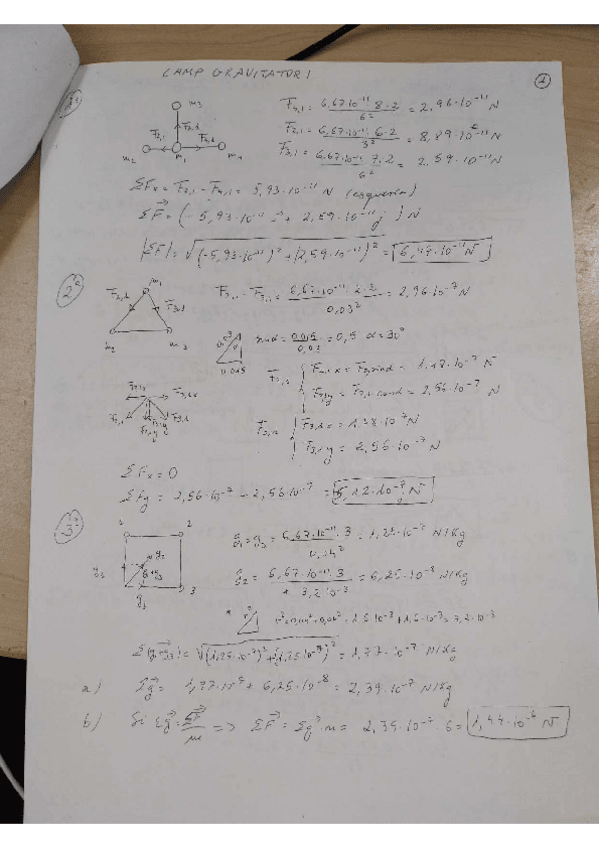 CAMP GRAVITATORI
1
1ª
m3
F3,1
F2,1
F4,1
m2
m1
m4
F4,1 = 6,67·10⁻¹¹ 8·2 / 6² = 2,96·10⁻¹¹ N
F2,1 = 6,67·10⁻¹¹ 6·2 / 3² = 8,89·10⁻¹¹ N
F3,1 = 6,67·10⁻¹¹ 7·2 / 6² = 2,59·10⁻¹¹ N
ΣFx = F2,1 - F4,1 = 5,93·10⁻¹¹ N (esquerra)
ΣF = (-5,93·10⁻¹¹ i + 2,59·10⁻¹¹ j) N
|ΣF| = √(-5,93·10⁻¹¹)² + (2,59·10⁻¹¹)² = 6,47·10⁻¹¹ N
2ª
m1
F2,1
F3,1
m2
m3
F2,1 = F3,1 = 6,67·10⁻¹¹ 2·2 / 0,03² = 2,96·10⁻⁷ N
0,015
sin α = 0,015 / 0,03 = 0,5 α = 30°
F2,1
F2,1x = F2,1 sin α = 1,48·10⁻⁷ N
F2,1y = F2,1 cos α = 2,56·10⁻⁷ N
F3,1
F3,1x = 1,48·10⁻⁷ N
F3,1y = 2,56·10⁻⁷ N
ΣFx = 0
ΣFy = 2,56·10⁻⁷ - 2,56·10⁻⁷ = 5,12·10⁻⁷ N
3ª
1
2
g2
g3
g1
3
g1 = g3 = 6,67·10⁻¹¹·3 / 0,04² = 1,25·10⁻⁷ N/Kg
g2 = 6,67·10⁻¹¹·3 / 3,2·10⁻³ = 6,25·10⁻⁸ N/Kg
r² = 0,04² + 0,04² = 1,6·10⁻³ + 1,6·10⁻³ = 3,2·10⁻³
Σ(g1+g3) = √(1,25·10⁻⁷)² + (1,25·10⁻⁷)² = 1,77·10⁻⁷ N/Kg
a) Σg = 1,77·10⁻⁷ + 6,25·10⁻⁸ = 2,39·10⁻⁷ N/Kg
b) Si Σg = ΣF / m => ΣF = Σg·m = 2,39·10⁻⁷·6 = 1,44·10⁻⁶ N